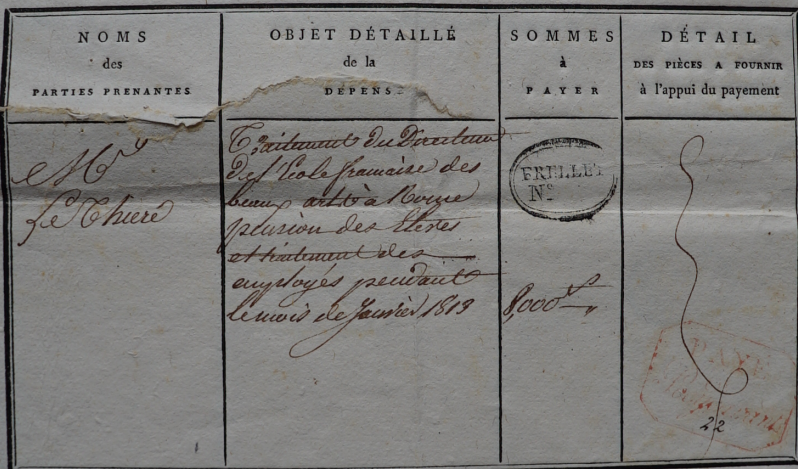 NOMS
des
PARTIES PRENANTES
OBJET DÉTAILLÉ
de la
DÉPENSE
SOMMES
à
PAYER
DÉTAIL
DES PIÈCES A FOURNIR
à l'appui du payement
Mr
Le Thiere
Traitement du Directeur
de l'Ecole française des
beaux arts à Rome
pension des Elèves
et traitement des
employés pendant
le mois de Janvier 1813
8,000
FRELLET
N°
PAYÉ
22